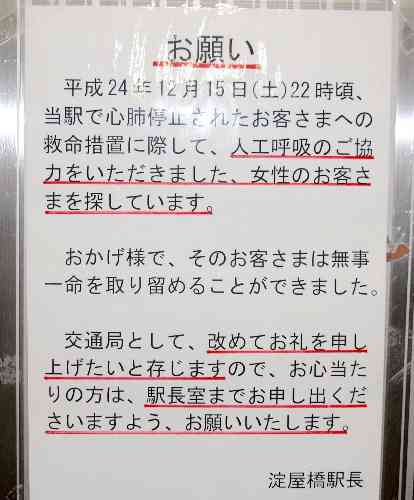 お願い
平成24年12月15日(土)22時頃、
当駅で心肺停止されたお客さまへの
救命措置に際して、人工呼吸のご協
力をいただきました、女性のお客さ
まを探しています。
おかげ様で、そのお客さまは無事
一命を取り留めることができました。
交通局として、改めてお礼を申し
上げたいと存じますので、お心当た
りの方は、駅長室までお申し出くだ
さいますよう、お願いいたします。
淀屋橋駅長